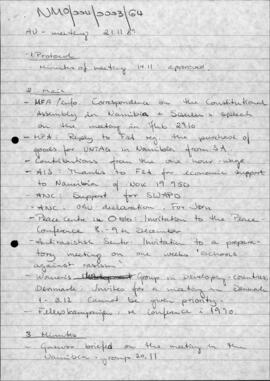 NM0/004/0003/64
AU - meeting 21.11.89
1. Protocol
Minutes of meeting 14.11 approved
2. Mail
- MFA/info. Correspondence on the Constitutional
Assembly in Namibia + speech
on the meeting in Hub 29/10
- MFA. Reply to Fat reg. the purchase of
goods for UNTAG in Namibia from SA.
- Contributions from the one hour-wage
- AIS: Thanks to for economic support
to Namibia of NOK 19.950
- ANC. Support for SWAPO
- ANC. OAU declaration. For
- Peace Centre in Oslo: Invitation to the Peace
Conference 8.-9th December
- Antirasistisk Senter. Invitation to a prepara-
tory meeting on one weeks actions
against racism.
- Women's Group in Developing countries,
Denmark. Invites for a meeting in Denmark
1-3.12 Cannot be given priority.
- Felleskampanjen: Conference in 1990.
3. Namibia
briefed on the meeting in the
Namibia-group 20.11